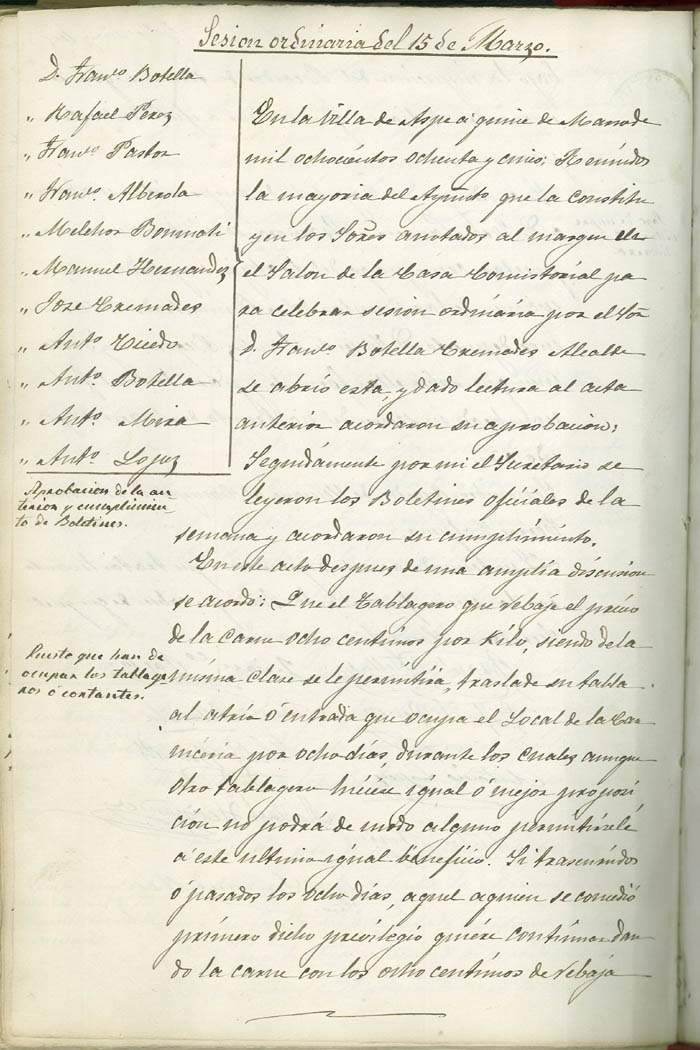 Sesion ordinaria del 15 de Marzo.
D. Franco Botella
" Rafael Perez
" Franco Pastor
" Franco Alberola
" Melchor Bonmati
" Manuel Hernandez
" Jose Cremades
" Anto
" Anto Botella
" Anto Mira
" Anto Lopez
Aprobacion de la an
terior y cumplimien
to de Boletines.
Puesto que han de
ocupar los tablage
ros ó cortantes.
En la Villa de Aspe á quince de Marzo de
mil ochocientos ochenta y cinco; Reunidos
la mayoria del Ayunto que la constitu
yen los Sores anotados al margen en
el Salon de la Casa Consistorial pa
ra celebrar sesion ordinaria por el Sor
D. Franco Botella Cremades Alcalde
se abrió esta, y dado lectura al acta
anterior acordaron su aprobacion;
Seguidamente por mi el Secretario se
leyeron los Boletines oficiales de la
semana y acordaron su cumplimiento.
En este acto despues de una amplia discusion
se acordó: Que el Tablagero que rebaje el precio
de la carne ocho centimos por Kilo, siendo de la
misma clase se le permitirá, traslade su tabla
al atrio ó entrada que ocupa el Local de la Car
niceria por ocho dias, durante los cuales aunque
otro tablagero hiciere igual ó mejor proposi
cion no podrá de modo alguno permitirsele
á este ultimo igual beneficio. Si trascurridos
ó pasados los ocho dias, aquel a quien se concedió
primero dicho privilegio quiere continuar dan
do la carne con los ocho centimos de rebaja